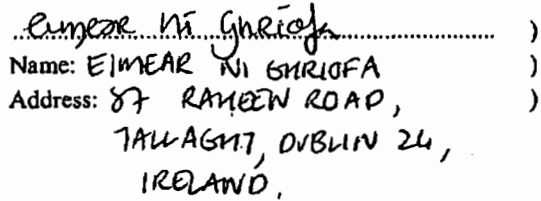 Eimear Ní Ghríofa )
Name: EIMEAR NI GHRIOFA )
Address: 87 RAHEEN ROAD, )
TALLAGHT, DUBLIN 24,
IRELAND,